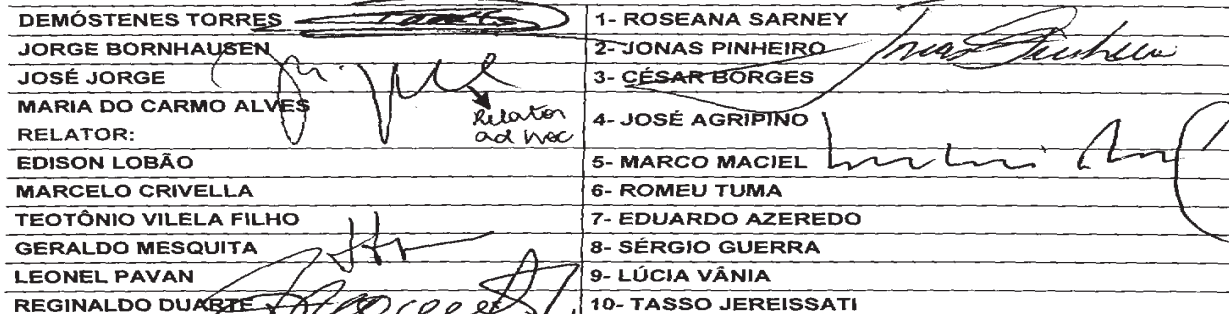 DEMÓSTENES TORRES 1- ROSEANA SARNEY
JORGE BORNHAUSEN 2- JONAS PINHEIRO
JOSÉ JORGE 3- CÉSAR BORGES
MARIA DO CARMO ALVES
RELATOR: 4- JOSÉ AGRIPINO
Relator
ad hoc
EDISON LOBÃO 5- MARCO MACIEL
MARCELO CRIVELLA 6- ROMEU TUMA
TEOTÔNIO VILELA FILHO 7- EDUARDO AZEREDO
GERALDO MESQUITA 8- SÉRGIO GUERRA
LEONEL PAVAN 9- LÚCIA VÂNIA
REGINALDO DUARTE 10- TASSO JEREISSATI